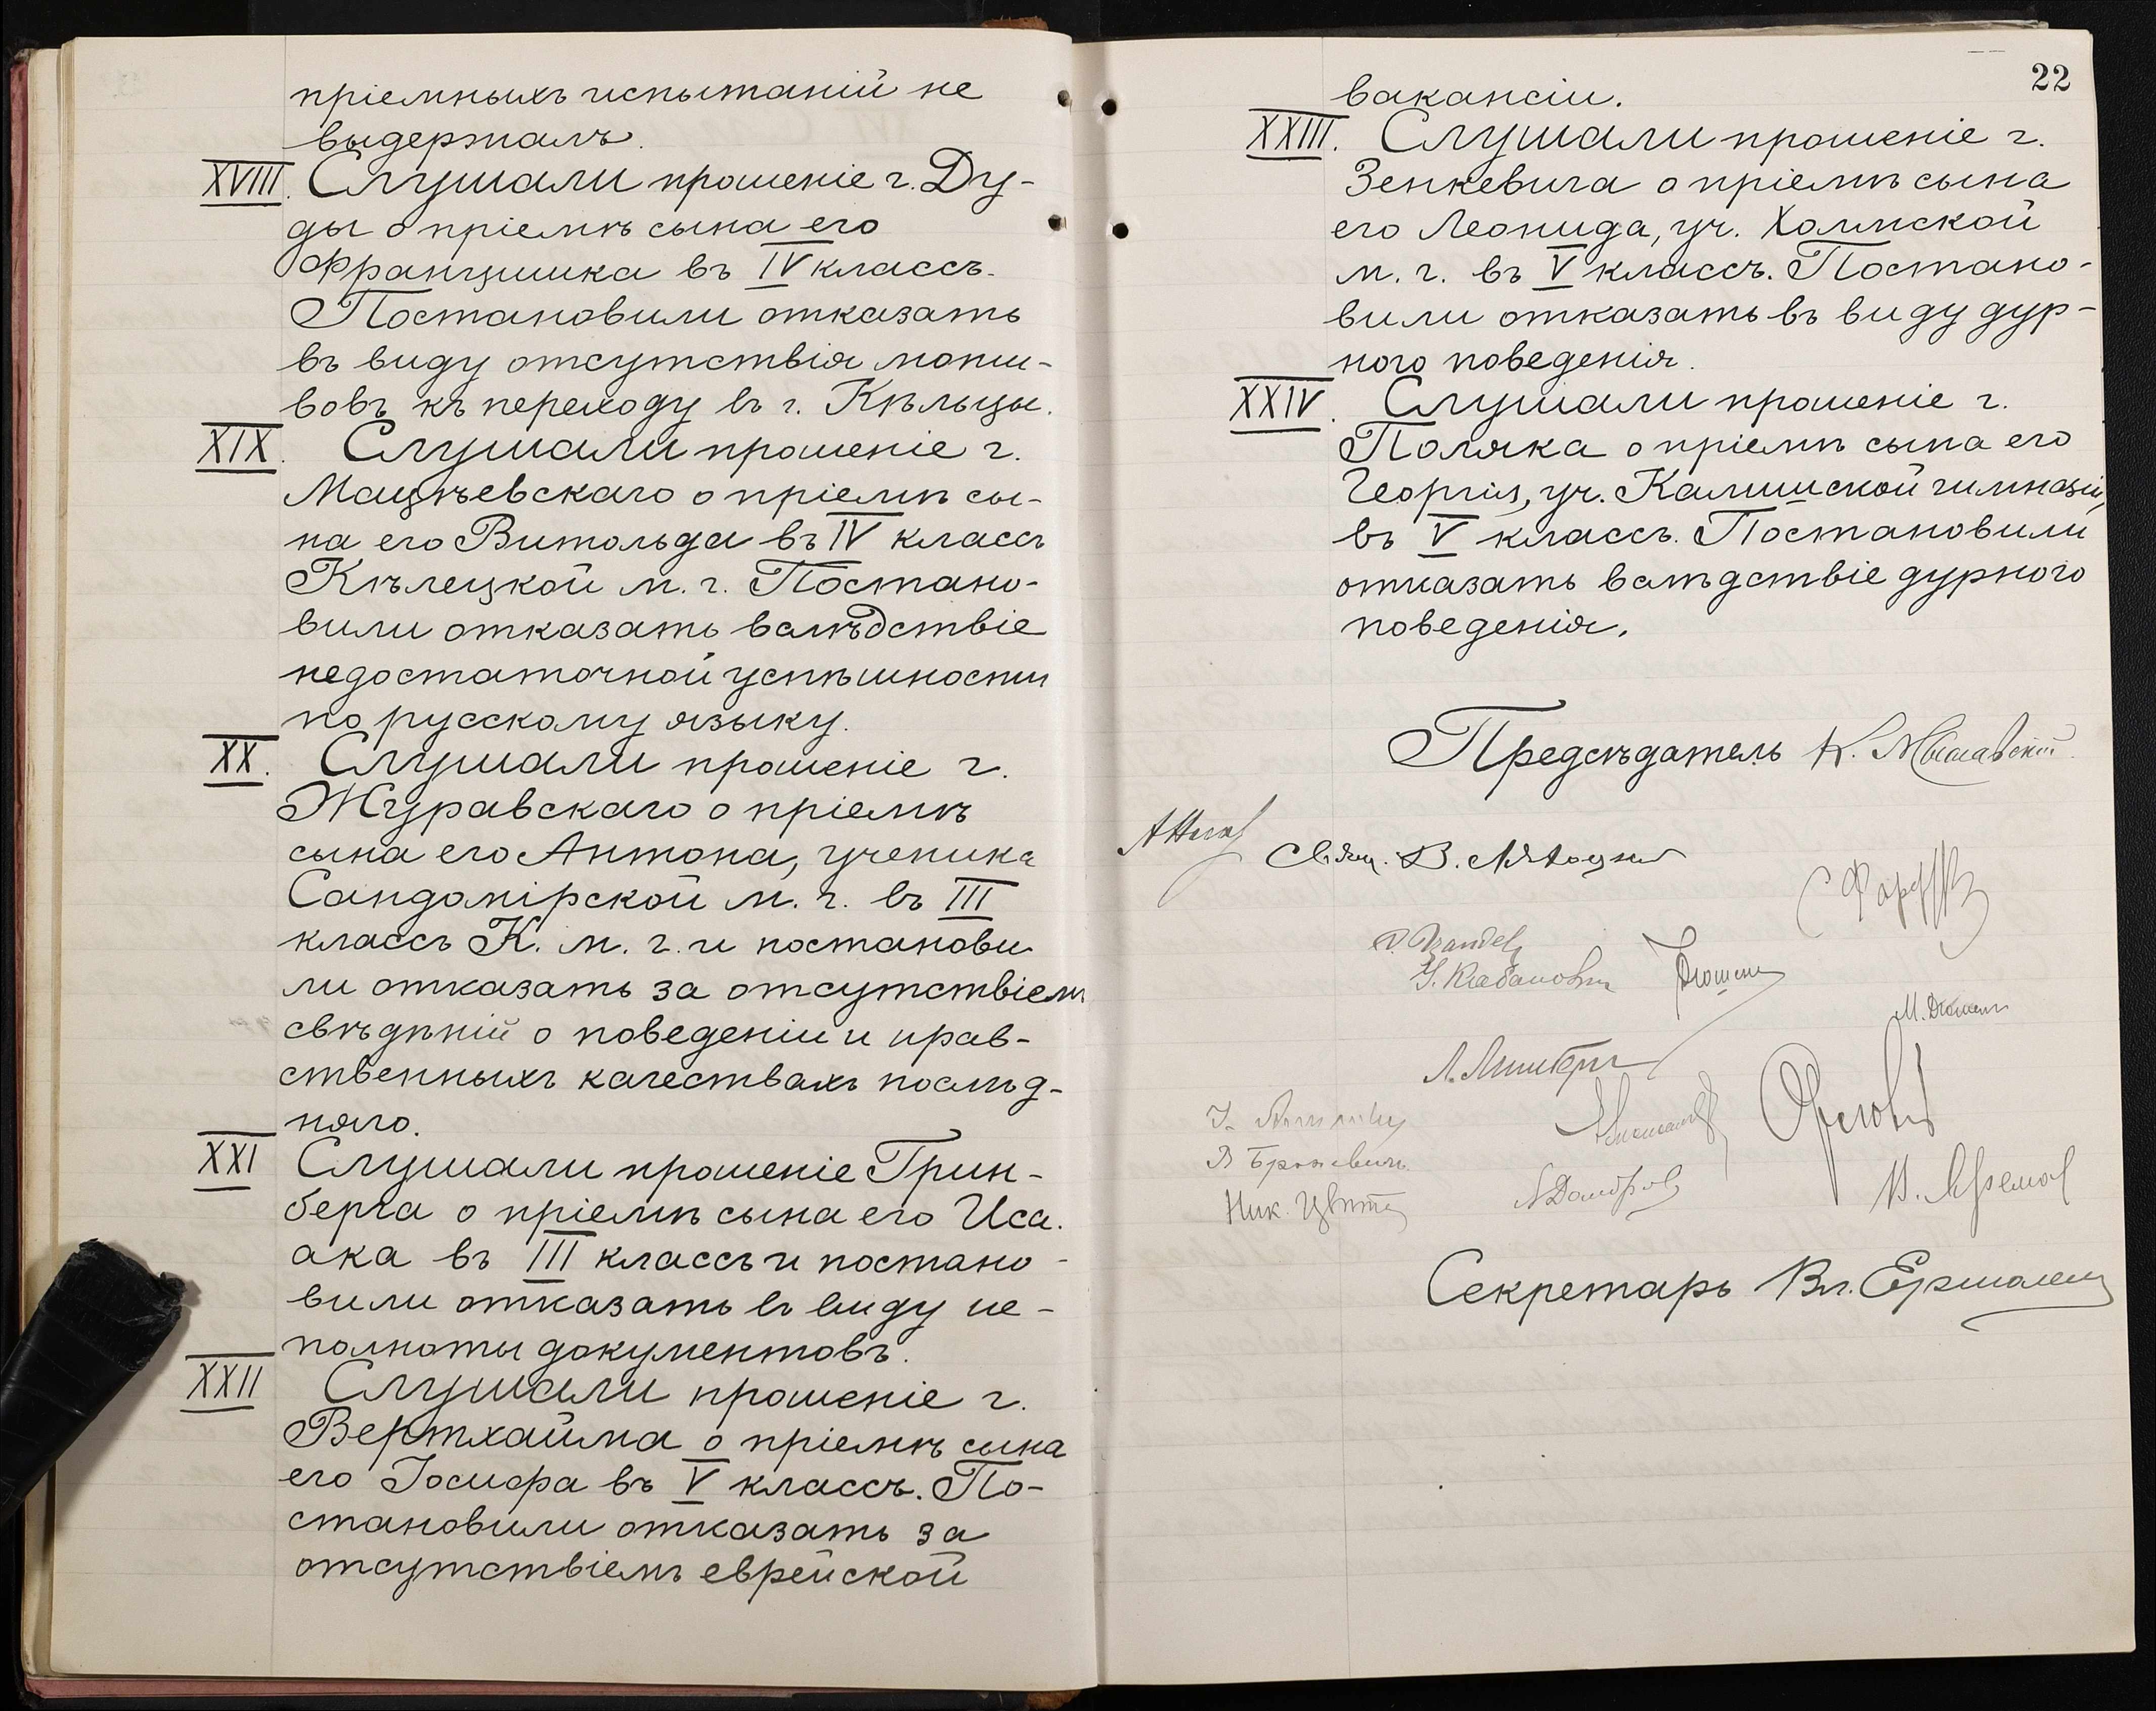 пріемныхъ испытаній не
выдержалъ.
XVIII. Слушали прошеніе г. Ду-
ды о пріемѣ сына его
Францишка въ IV классъ.
Постановили отказать
въ виду отсутствія моти-
вовъ къ переходу въ г. Кѣльцы.
XIX. Слушали прошеніе г.
Мацѣевскаго о пріемѣ сы-
на его Витольда въ IV классъ
Кѣлецкой м. г. Постано-
вили отказать вслѣдствіе
недостаточной успѣшности
по русскому языку.
XX. Слушали прошеніе г.
Журавскаго о пріемѣ
сына его Антона, ученика
Сандомірской м. г. въ III
классъ К. м. г. и постанови
ли отказать за отсутствіемъ
свѣдѣній о поведеніи и нрав-
ственныхъ качествахъ послѣд-
няго.
XXI Слушали прошеніе Грин-
берга о пріемѣ сына его Иса-
ака въ III классъ и постано-
вили отказать въ виду не-
полноты документовъ.
XXII Слушали прошеніе г.
Вертхайма о пріемѣ сына
его Іосифа въ V классъ. По-
становили отказать за
отсутствіемъ еврейской
22
вакансіи.
XXIII. Слушали прошеніе г.
Зенкевича о пріемѣ сына
его Леонида, уч. Холмской
м. г. въ V классъ. Постано-
вили отказать въ виду дур-
ного поведенія.
XXIV. Слушали прошеніе г.
Поляка о пріемѣ сына его
Георгія, уч. Калишской гимназіи,
въ V классъ. Постановили
отказать вслѣдствіе дурного
поведенія.
Предсѣдатель К.
Свящ. В.
М.
Л.
Ник. Цвѣт
Секретарь Вл.